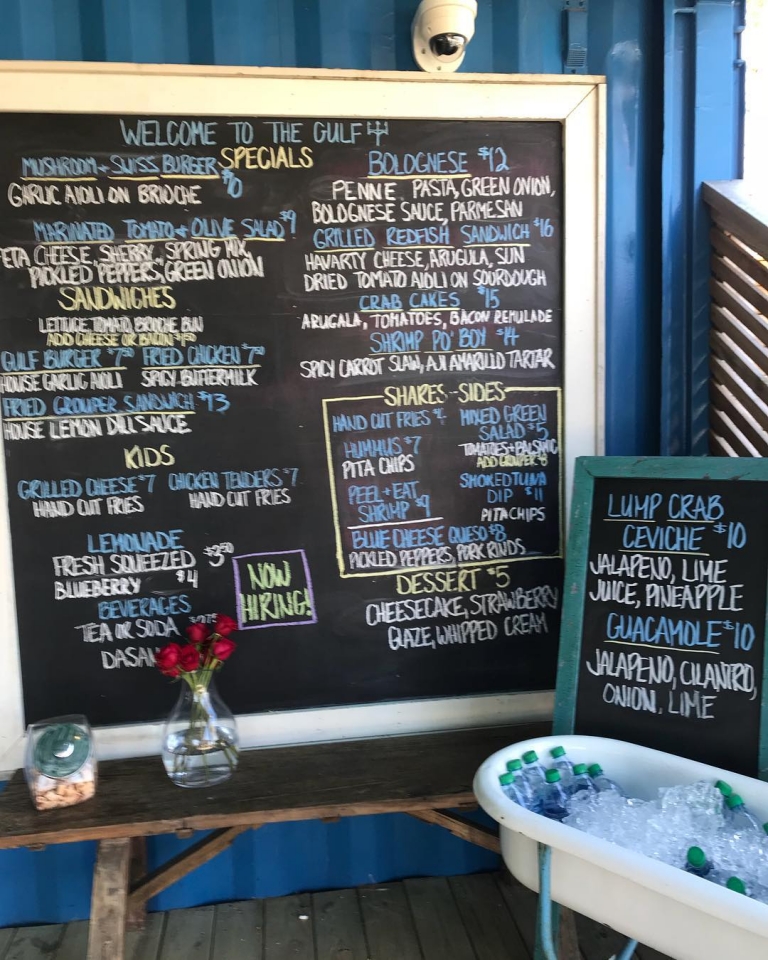 WELCOME TO THE GULF
SPECIALS
MUSHROOM + SWISS BURGER
GARLIC AIOLI ON BRIOCHE
MARINATED TOMATO + OLIVE SALAD $9
ETA CHEESE, SHERRY, SPRING MIX,
PICKLED PEPPERS, GREEN ONION
SANDWICHES
LETTUCE, TOMATO, BRIOCHE BUN
ADD CHEESE OR BACON
GULF BURGER $7 FRIED CHICKEN $7
HOUSE GARLIC AIOLI SPICY BUTTERMILK
FRIED GROUPER SANDWICH $13
HOUSE LEMON DILL SAUCE
KIDS
GRILLED CHEESE $7 CHICKEN TENDERS $7
HAND CUT FRIES HAND CUT FRIES
LEMONADE
FRESH SQUEEZED $3.50
BLUEBERRY $4
BEVERAGES
TEA OR SODA
DASAN
NOW
HIRING!
BOLOGNESE $12
PENNE PASTA, GREEN ONION,
BOLOGNESE SAUCE, PARMESAN
GRILLED REDFISH SANDWICH $16
HAVARTY CHEESE, ARUGULA, SUN
DRIED TOMATO AIOLI ON SOURDOUGH
CRAB CAKES $15
ARUGALA, TOMATOES, BACON REMULADE
SHRIMP PO' BOY $14
SPICY CARROT SLAW, AJI AMARILLO TARTAR
SHARES - SIDES
HAND CUT FRIES
HUMMUS $7
PITA CHIPS
PEEL + EAT
SHRIMP $9
MIXED GREEN
SALAD $5
TOMATOES + BALSAMIC
ADD GROUPER
SMOKED TUNA
DIP $11
PITA CHIPS
BLUE CHEESE QUESO $8
PICKLED PEPPERS, PORK RINDS
DESSERT $5
CHEESECAKE, STRAWBERRY
GLAZE, WHIPPED CREAM
LUMP CRAB
CEVICHE $10
JALAPENO, LIME
JUICE, PINEAPPLE
GUACAMOLE $10
JALAPENO, CILANTRO,
ONION, LIME